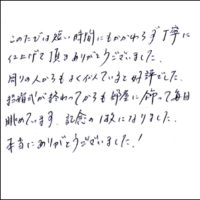 このたびは短い時間にもかかわらず丁寧に
仕上げて頂きありがとうございました。
周りの人からもよく似ていると好評でした。
結婚式が終わってからも部屋に飾って毎日
眺めています。記念の1枚になりました。
本当にありがとうございました！